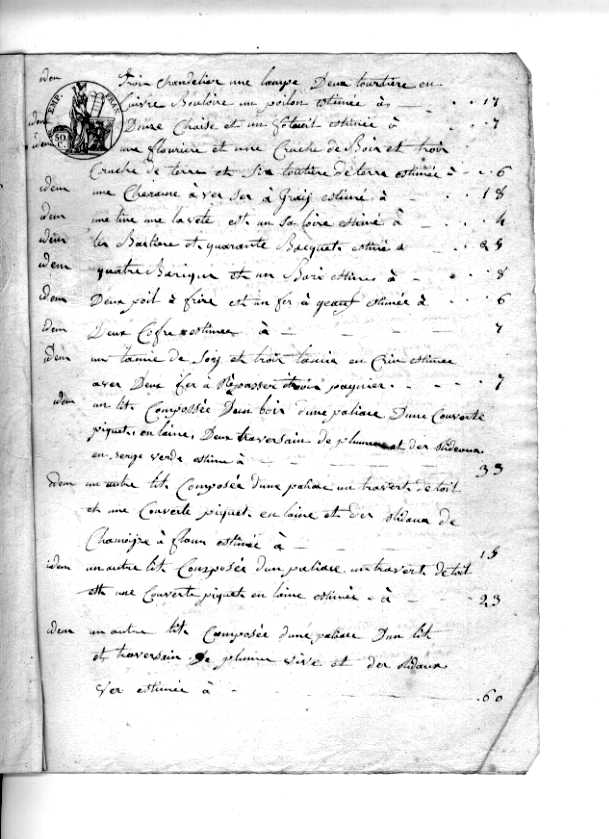 idem trois chandelier une lampe Deux tourtiere en
Cuivre Bouloire un poilon estimée à, 17
idem Douze Chaise et un fotauil estimée à 7
idem une fleuriere et une Cruche de Bois et trois
Cruche de terre et Six toutiere de terre estimée à 6
idem une à 18
idem une tine une laveté est un saloire estimé à 4
idem les et quarante Bacquet estimé a
idem quatre Barique et un Bari estimés à 8
idem Deux poil à frire est un fer à geauf estimée à 6
idem Deux Cofre estimee à 7
idem un tamie de Soy et trois tamie en Crin estimee
avec Deux fer à Repasser et trois pagnier 7
idem un lit Compossée Deun bois d'une paliace D'une Couverte
piquet en laine, Deux traversain de plumes et des Rideaux
en serge verde estimé à 33
idem un autre lit Composée d'une paliace un travert de toit
et une Converte piquet en laine et des Ridaux de
à estimée à 15
idem un autre lit Composée d'un paliace un travert de toit
est une Couverte piquet en laine estimée à 23
idem un autre lit Composée d'une paliace D'un lit
et traversain De plume vive et des Ridaux
Ver estimée à 60